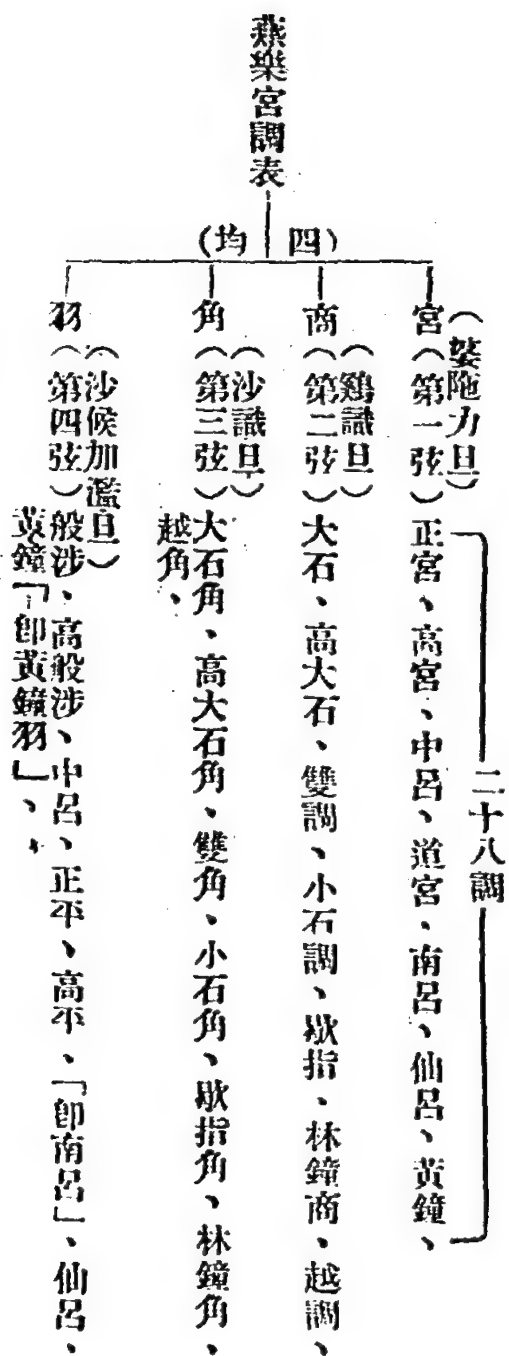 燕樂宮調表
(四均)
二十八調
(婆陁力旦)
宮(第一弦)正宮、高宮、中呂、道宮、南呂、仙呂、黃鐘、
(鷄識旦)
商(第二弦)大石、高大石、雙調、小石調、歇指、林鐘商、越調、
(沙識旦)
角(第三弦)大石角、高大石角、雙角、小石角、歇指角、林鐘角、
越角、
(沙候加濫旦)
羽(第四弦)般涉、高般涉、中呂、正平、高平、「卽南呂」、仙呂、
黃鐘「卽黃鐘羽」、